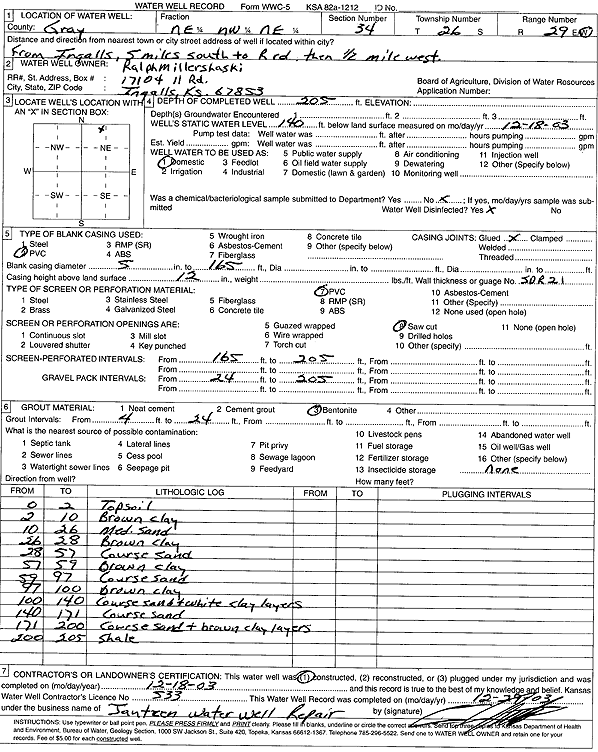 WATER WELL RECORD Form WWC-5 KSA 82a-1212 ID No.
1 LOCATION OF WATER WELL: Fraction Section Number Township Number Range Number
County: Gray NE ¼ NW ¼ NE ¼ 34 T 26 S R 29 E/W
Distance and direction from nearest town or city street address of well if located within city?
From Ingalls, 5 miles south to R rd, then 1/2 mile west.
2 WATER WELL OWNER: Ralph Millershaski
RR#, St. Address, Box # : 17104 11 Rd. Board of Agriculture, Division of Water Resources
City, State, ZIP Code : Ingalls, Ks. 67853 Application Number:
3 LOCATE WELL'S LOCATION WITH AN "X" IN SECTION BOX:
N
X
NW NE
W E
SW SE
S
4 DEPTH OF COMPLETED WELL 205 ft. ELEVATION:
Depth(s) Groundwater Encountered 1 ft. 2 ft. 3 ft.
WELL'S STATIC WATER LEVEL 140 ft. below land surface measured on mo/day/yr 12-18-03
Pump test data: Well water was ft. after hours pumping gpm
Est. Yield gpm: Well water was ft. after hours pumping gpm
WELL WATER TO BE USED AS: 5 Public water supply 8 Air conditioning 11 Injection well
1 Domestic 3 Feedlot 6 Oil field water supply 9 Dewatering 12 Other (Specify below)
2 Irrigation 4 Industrial 7 Domestic (lawn & garden) 10 Monitoring well
Was a chemical/bacteriological sample submitted to Department? Yes No X ; If yes, mo/day/yrs sample was submitted
Water Well Disinfected? Yes X No
5 TYPE OF BLANK CASING USED: 5 Wrought iron 8 Concrete tile CASING JOINTS: Glued X Clamped
1 Steel 3 RMP (SR) 6 Asbestos-Cement 9 Other (specify below) Welded
2 PVC 4 ABS 7 Fiberglass Threaded
Blank casing diameter 5 in. to 165 ft., Dia in. to ft., Dia in. to ft.
Casing height above land surface 12 in., weight lbs./ft. Wall thickness or guage No. SDR 21
TYPE OF SCREEN OR PERFORATION MATERIAL: 7 PVC 10 Asbestos-Cement
1 Steel 3 Stainless Steel 5 Fiberglass 8 RMP (SR) 11 Other (Specify)
2 Brass 4 Galvanized Steel 6 Concrete tile 9 ABS 12 None used (open hole)
SCREEN OR PERFORATION OPENINGS ARE: 5 Guazed wrapped 8 Saw cut 11 None (open hole)
1 Continuous slot 3 Mill slot 6 Wire wrapped 9 Drilled holes
2 Louvered shutter 4 Key punched 7 Torch cut 10 Other (specify) ft.
SCREEN-PERFORATED INTERVALS: From 165 ft. to 205 ft., From ft. to ft.
From ft. to ft., From ft. to ft.
GRAVEL PACK INTERVALS: From 24 ft. to 205 ft., From ft. to ft.
From ft. to ft., From ft. to ft.
6 GROUT MATERIAL: 1 Neat cement 2 Cement grout 3 Bentonite 4 Other
Grout Intervals: From 4 ft. to 24 ft., From ft. to ft., From ft. to ft.
What is the nearest source of possible contamination: 10 Livestock pens 14 Abandoned water well
1 Septic tank 4 Lateral lines 7 Pit privy 11 Fuel storage 15 Oil well/Gas well
2 Sewer lines 5 Cess pool 8 Sewage lagoon 12 Fertilizer storage 16 Other (specify below)
3 Watertight sewer lines 6 Seepage pit 9 Feedyard 13 Insecticide storage none
Direction from well? How many feet?
FROM TO LITHOLOGIC LOG FROM TO PLUGGING INTERVALS
0 2 Topsoil
2 10 Brown clay
10 26 Med. sand
26 28 Brown clay
28 57 Course sand
57 59 Brown clay
59 97 Course sand
97 100 Brown clay
100 140 Course sand + white clay layers
140 171 Course sand
171 200 Course sand + brown clay layers
200 205 Shale
7 CONTRACTOR'S OR LANDOWNER'S CERTIFICATION: This water well was (1) constructed, (2) reconstructed, or (3) plugged under my jurisdiction and was
completed on (mo/day/year) 12-18-03 and this record is true to the best of my knowledge and belief. Kansas
Water Well Contractor's Licence No 533 This Water Well Record was completed on (mo/day/yr) 12-29-03
under the business name of Jantzen Water Well Repair by (signature)
INSTRUCTIONS: Use typewriter or ball point pen. PLEASE PRESS FIRMLY and PRINT clearly. Please fill in blanks, underline or circle the correct answers. Send top three copies to Kansas Department of Health
and Environment, Bureau of Water, Geology Section, 1000 SW Jackson St., Suite 420, Topeka, Kansas 66612-1367. Telephone 785-296-5522. Send one to WATER WELL OWNER and retain one for your
records. Fee of $5.00 for each constructed well.